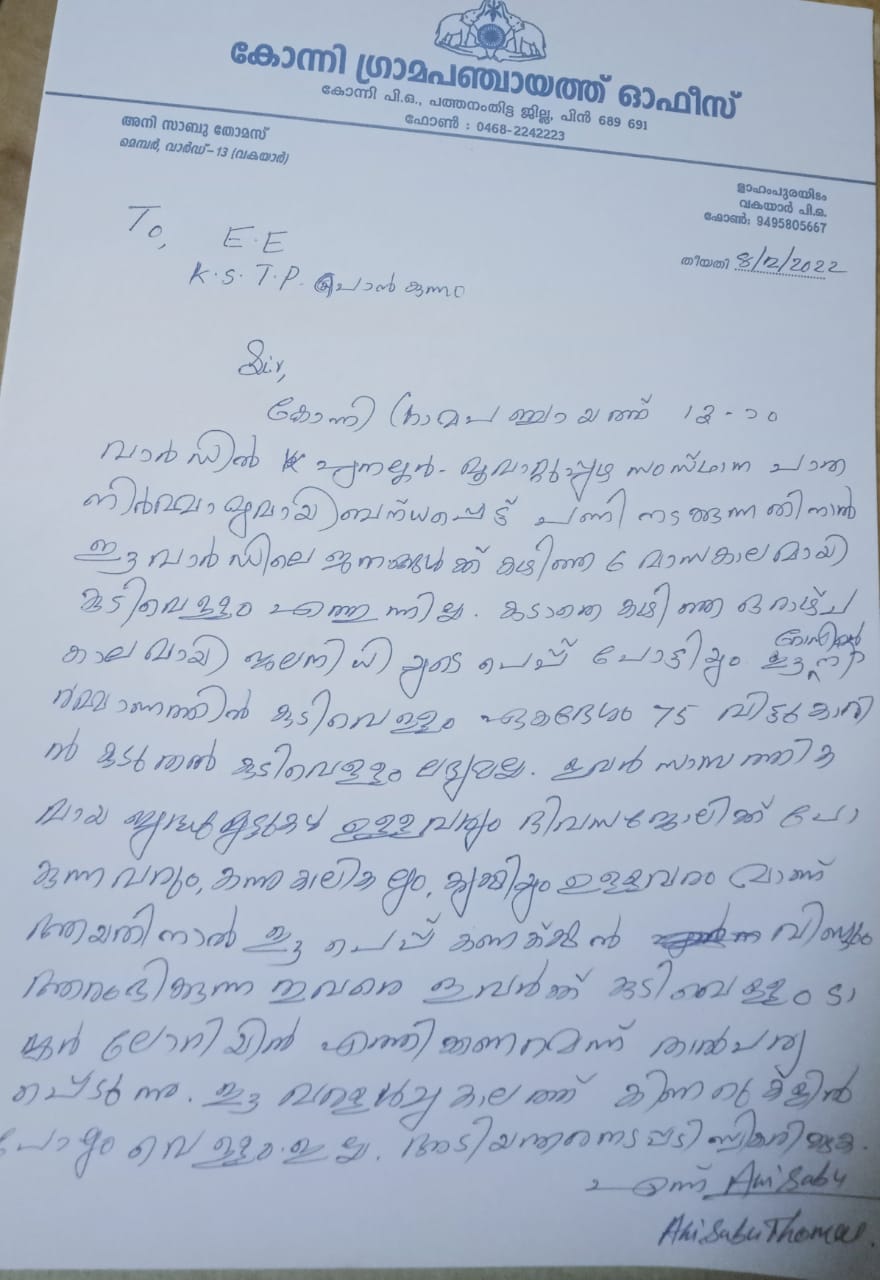 കോന്നി ഗ്രാമപഞ്ചായത്ത് ഓഫീസ്
കോന്നി പി.ഒ., പത്തനംതിട്ട ജില്ല, പിൻ 689 691
ഫോൺ : 0468-2242223
അനി സാബു തോമസ്
മെമ്പർ, വാർഡ്-13 (വകയാർ)
മാഹംപുരയിടം
വകയാർ പി.ഒ.
ഫോൺ: 9495805667
തീയതി 8/12/2022
To,
E.E
K.S.T.P. പൊൻകുന്നം
Sir,
കോന്നി ഗ്രാമപഞ്ചായത്ത് 13-ാം
വാർഡിൽ പുനലൂർ-മൂവാറ്റുപുഴ സംസ്ഥാന പാത
നിർമ്മാണവുമായി ബന്ധപ്പെട്ട് പണി നടക്കുന്നതിനാൽ
ഈ വാർഡിലെ ജനങ്ങൾക്ക് കഴിഞ്ഞ 6 മാസകാലമായി
കുടിവെള്ളം എത്തുന്നില്ല. കൂടാതെ കഴിഞ്ഞ ഒരാഴ്ച
കാലമായി ജലനിധിയുടെ പൈപ്പ് പൊട്ടിയും ഈ റോഡിന്റെ
നിർമ്മാണത്തിൽ കുടിവെള്ളം ഏകദേശം 75 വീട്ടുകാരി
ൽ കൂടുതൽ കുടിവെള്ളം ലഭ്യമല്ല. ഇവർ സാമ്പത്തിക
മായ ബുദ്ധിമുട്ടുകൾ ഉള്ളവരും ദിവസജോലിക്ക് പോ
കുന്നവരും, കന്നുകാലികളും, കൃഷിയും ഉള്ളവരുമാണ്
ആയതിനാൽ ഈ പൈപ്പ് കണക്ഷൻ വീണ്ടും
ആരംഭിക്കുന്നതുവരെ ഇവർക്ക് കുടിവെള്ളം ടാ
ങ്കർ ലോറിയിൽ എത്തിക്കണമെന്ന് താൽപര്യ
പ്പെടുന്നു. ഈ വരൾച്ച കാലത്ത് കിണറുകളിൽ
പോലും വെള്ളം ഇല്ല. അടിയന്തരനടപടി സ്വീകരിക്കുക.
എന്ന് Ani Sabu
Ani Sabu Thomas.